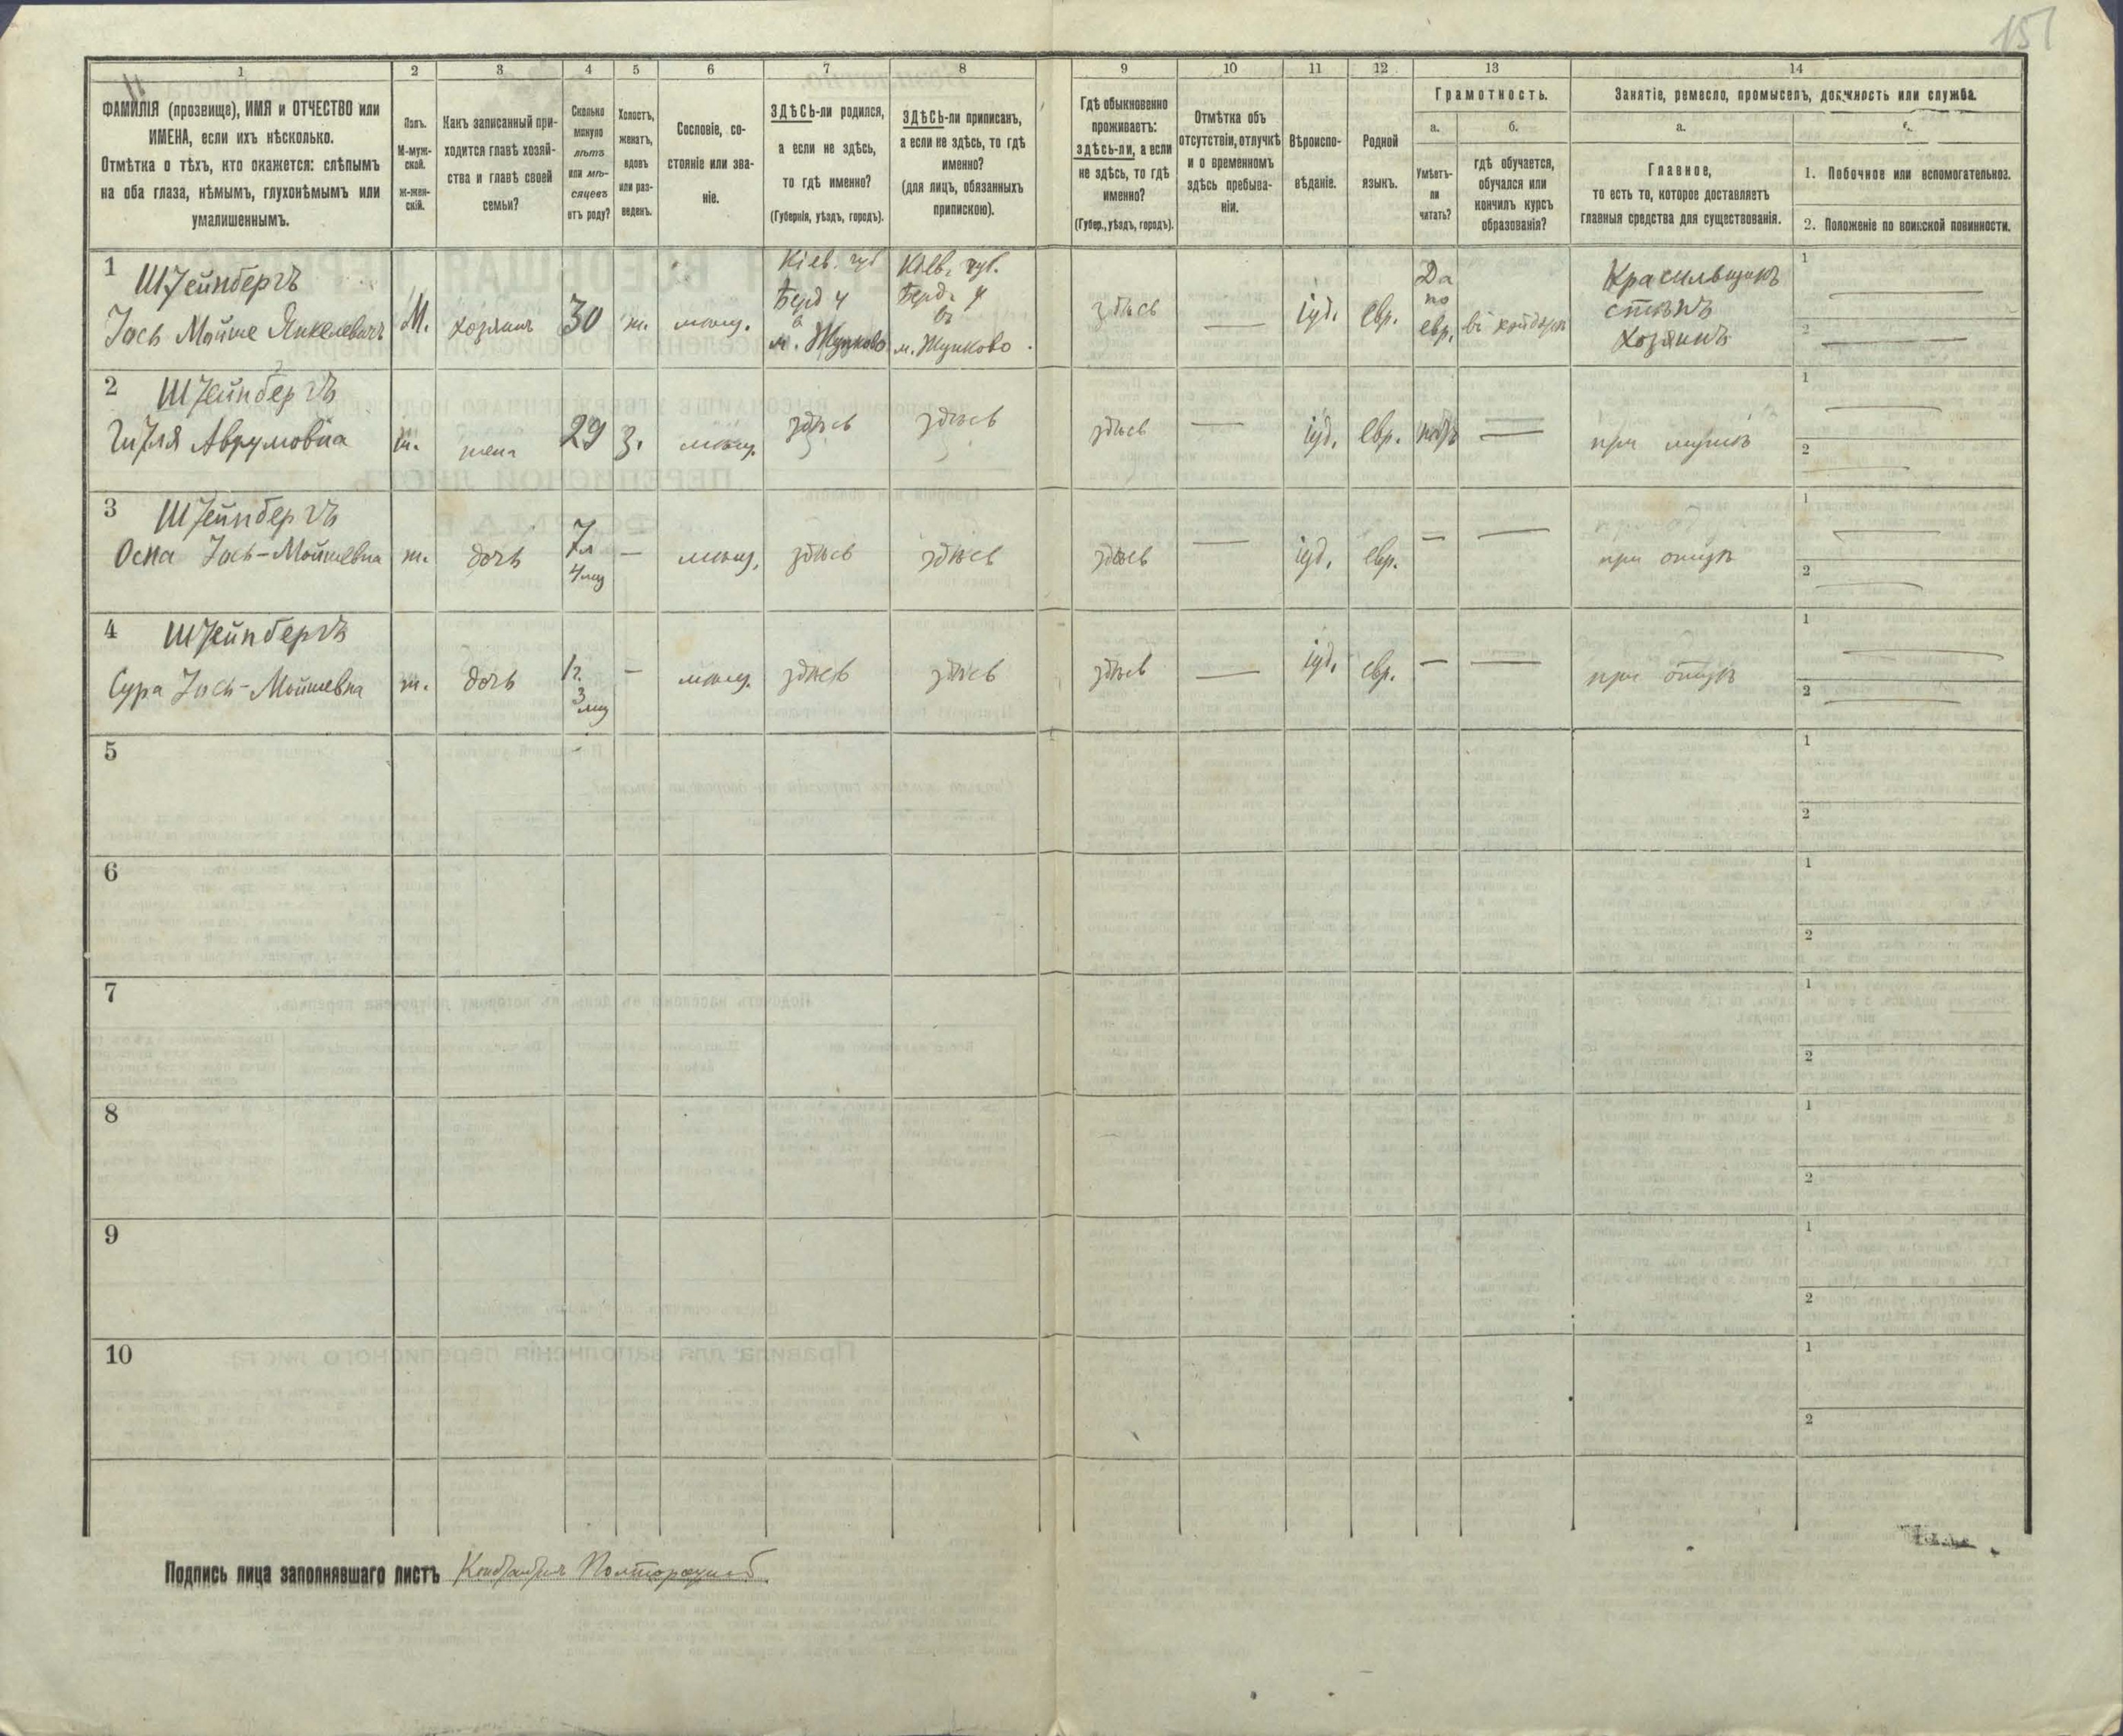 151
1
ФАМИЛІЯ (прозвище), ИМЯ и ОТЧЕСТВО или
ИМЕНА, если ихъ нѣсколько.
Отмѣтка о тѣхъ, кто окажется: слѣпымъ
на оба глаза, нѣмымъ, глухонѣмымъ или
умалишеннымъ.
2
Полъ.
М-муж-
ской.
ж-жен-
скій.
3
Какъ записанный при-
ходится главѣ хозяй-
ства и главѣ своей
семьи?
4
Сколько
минуло
лѣтъ
или мѣ-
сяцевъ
отъ роду?
5
Холостъ,
женатъ,
вдовъ
или раз-
веденъ.
6
Сословіе, со-
стояніе или зва-
ніе.
7
ЗДѢСЬ-ли родился,
а если не здѣсь,
то гдѣ именно?
(Губернія, уѣздъ, городъ).
8
ЗДѢСЬ-ли приписанъ,
а если не здѣсь, то гдѣ
именно?
(для лицъ, обязанныхъ
припискою).
9
Гдѣ обыкновенно
проживаетъ:
здѣсь-ли, а если
не здѣсь, то гдѣ
именно?
(Губер., уѣздъ, городъ).
10
Отмѣтка объ
отсутствіи, отлучкѣ
и о временномъ
здѣсь пребыва-
ніи.
11
Вѣроиспо-
вѣданіе.
12
Родной
языкъ.
13
Грамотность.
а.
Умѣетъ-
ли
читать?
б.
гдѣ обучается,
обучался или
кончилъ курсъ
образованія?
14
Занятіе, ремесло, промыселъ, должность или служба.
а.
Главное,
то есть то, которое доставляетъ
главныя средства для существованія.
1. Побочное или вспомогательное.
2. Положеніе по воинской повинности.
1
Штейнбергъ
Іось Мойше Янкелевичъ
М.
хозяинъ
30
ж.
мѣщ.
Кіев. губ
Берд у
м. Жунково
Кіев. губ.
Берд. у
м. Жунково
здѣсь
—
іуд.
евр.
Да
по
евр.
Красильщикъ
стѣнъ
Хозяинъ
1 —
2 —
2
Штейнбергъ
Гитля Аврумовна
ж.
жена
29
З.
мѣщ.
здѣсь
здѣсь
здѣсь
—
іуд.
евр.
нѣтъ
—
при мужѣ
1 —
2 —
3
Штейнбергъ
Осна Іось-Мойшевна
ж.
дочь
7л
4 мц
—
мѣщ.
здѣсь
здѣсь
здѣсь
—
іуд.
евр.
—
—
при отцѣ
1 —
2 —
4
Штейнбергъ
Сура Іось-Мойшевна
ж.
дочь
1г.
3 мц
—
мѣщ.
здѣсь
здѣсь
здѣсь
—
іуд.
евр.
—
—
при отцѣ
1 —
2 —
5
1
2
6
1
2
7
1
2
8
1
2
9
1
2
10
1
2
Подпись лица заполнявшаго листъ